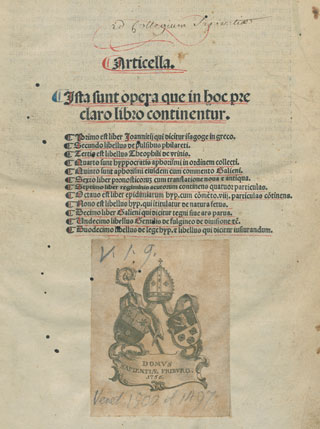 Articella.
Ista sunt opera que in hoc pre
claro libro continentur.
Primo est liber Joannitij qui dicitur isagoge in greco.
Secundo libellus de pulsibus philareti.
Tertio est libellus Theophili de vrinis.
Quarto sunt hyppocratis aphorismi in ordinem collecti.
Quinto sunt aphorismi eiusdem cum commento Galieni.
Sexto liber pronosticorũ cum translatione noua z antiqua.
Septimo liber regiminis acutorum continens quatuor particulas.
Octauo est liber epidimiarum hyp. cum cõmẽto. viij. particulas cõtinens.
Nono est libellus hyp. qui ĩtitulatur de natura fetus.
Decimo liber Galieni qui dicitur tegni siue ars parua.
Undecimo libellus Gentilis de fulgineo de diuisione
Duodecimo libellus de lege hyp. z libellus qui dicitur iusiurandum.
V. 1. 9.
DOMVS
SAPIENTIÆ FRIBVRG.